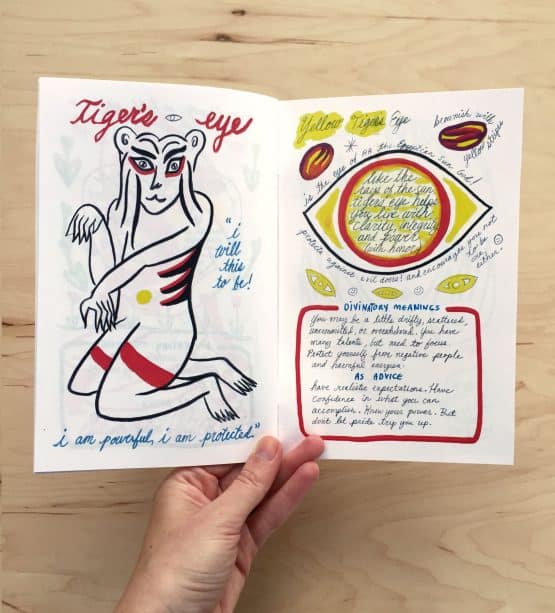 Tiger's eye
"i
will
this
to be!
i am powerful, i am protected."
Yellow Tigers Eye
brownish with
yellow stripes
is the eye of RA the Egyptian Sun God!
like the
rays of the sun
tigers eye helps
you live with
clarity, integrity
and power
(with honor)
protects against evil doers! and encourages you not
to be
one
either
DIVINATORY MEANINGS
You may be a little drifty, scattered,
uncommitted, or overextended. You have
many talents, but need to focus.
Protect yourself from negative people
and harmful energies.
AS ADVICE
have realistic expectations. Have
confidence in what you can
accomplish. Know your power. But
don't let pride trip you up.